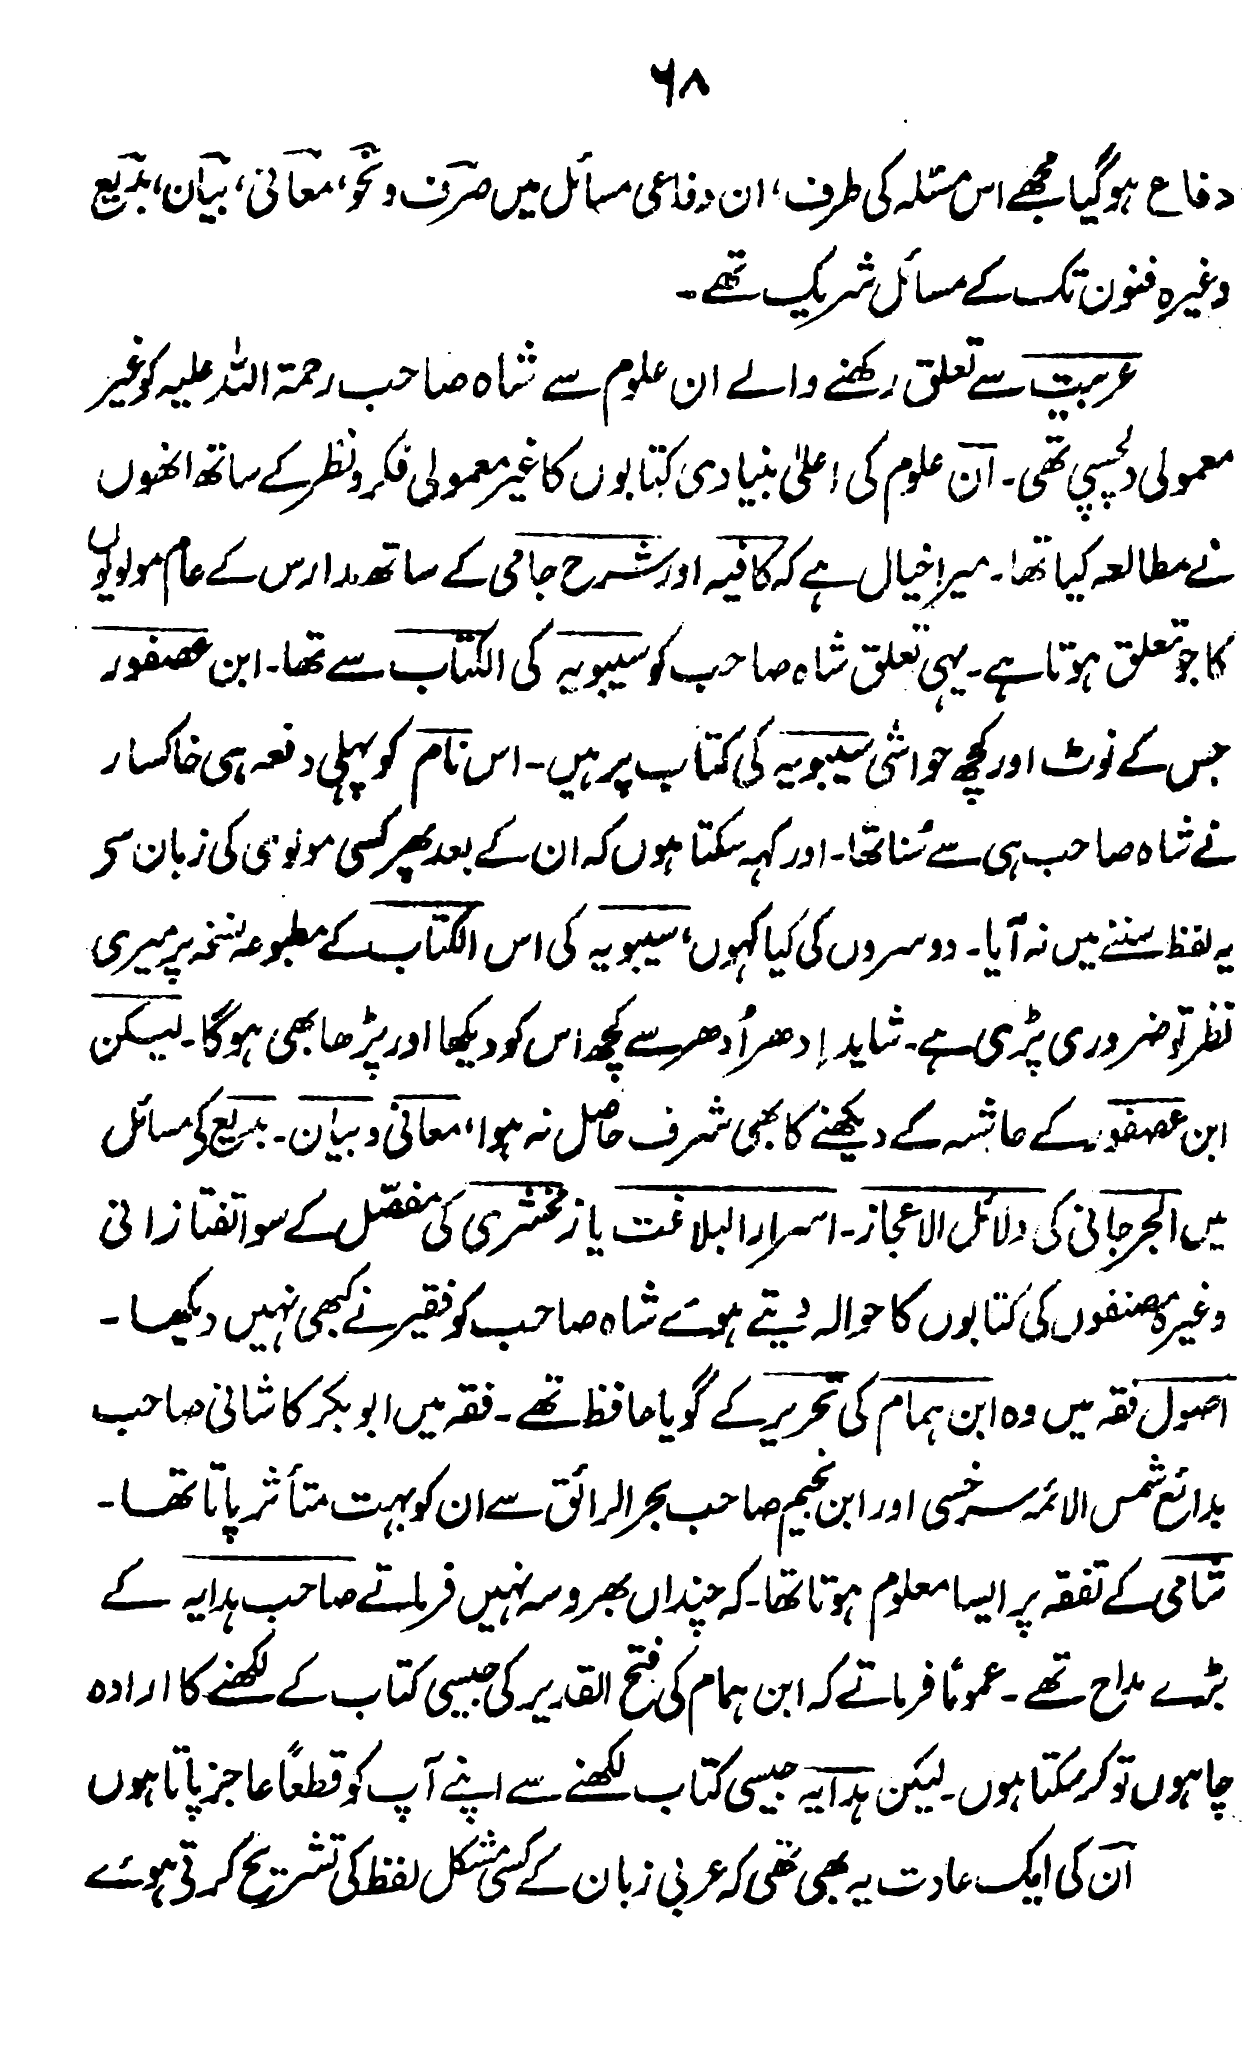 ۶۸
دفاع ہوگیا مجھے اس مسئلہ کی طرف، ان دفاعی مسائل میں صرف و نحو، معانی، بیان، بدیع
وغیرہ فنون تک کے مسائل شریک تھے۔
عربیت سے تعلق رکھنے والے ان علوم سے شاہ صاحب رحمۃ اللہ علیہ کو غیر
معمولی دلچسپی تھی۔ ان علوم کی اعلیٰ بنیادی کتابوں کا غیر معمولی فکر و نظر کے ساتھ انھوں
نے مطالعہ کیا تھا۔ میرا خیال ہے کہ کافیہ اور شرح جامی کے ساتھ مدارس کے عام مولویوں
کا جو تعلق ہوتا ہے۔ یہی تعلق شاہ صاحب کو سیبویہ کی الکتاب سے تھا۔ ابن عصفور
جس کے نوٹ اور کچھ حواشی سیبویہ کی کتاب پر ہیں۔ اس نام کو پہلی دفعہ ہی خاکسار
نے شاہ صاحب ہی سے سُنا تھا۔ اور کہہ سکتا ہوں کہ ان کے بعد پھر کسی مولوی کی زبان سے
یہ لفظ سننے میں نہ آیا۔ دوسروں کی کیا کہوں، سیبویہ کی اس الکتاب کے مطبوعہ نسخہ پر میری
نظر تو ضروری پڑی ہے۔ شاید اِدھر اُدھر سے کچھ اس کو دیکھا اور پڑھا بھی ہوگا۔ لیکن
ابن عصفور کے حاشیہ کے دیکھنے کا بھی شرف حاصل نہ ہوا، معانی و بیان۔ بدیع کی مسائل
میں الجرجانی کی دلائل الاعجاز۔ اسرار البلاغت یا زمخشری کی مفصّل کے سوا تفتازانی
وغیرہ مصنفوں کی کتابوں کا حوالہ دیتے ہوئے شاہ صاحب کو فقیر نے کبھی نہیں دیکھا۔
اصول فقہ میں وہ ابن ہمام کی تحریر کے گویا حافظ تھے۔ فقہ میں ابوبکر کاشانی صاحب
بدائع شمس الائمہ سرخسی اور ابن نجیم صاحب بحر الرائق سے ان کو بہت متأثر پاتا تھا۔
شامی کے تفقہ پر ایسا معلوم ہوتا تھا۔ کہ چنداں بھروسہ نہیں فرماتے صاحب ہدایہ کے
بڑے مداح تھے۔ عموماً فرماتے کہ ابن ہمام کی فتح القدیر کی جیسی کتاب کے لکھنے کا ارادہ
چاہوں تو کرسکتا ہوں۔ لیکن ہدایہ جیسی کتاب لکھنے سے اپنے آپ کو قطعاً عاجز پاتا ہوں
ان کی ایک عادت یہ بھی تھی کہ عربی زبان کے کسی مشکل لفظ کی تشریح کرتی ہوئے